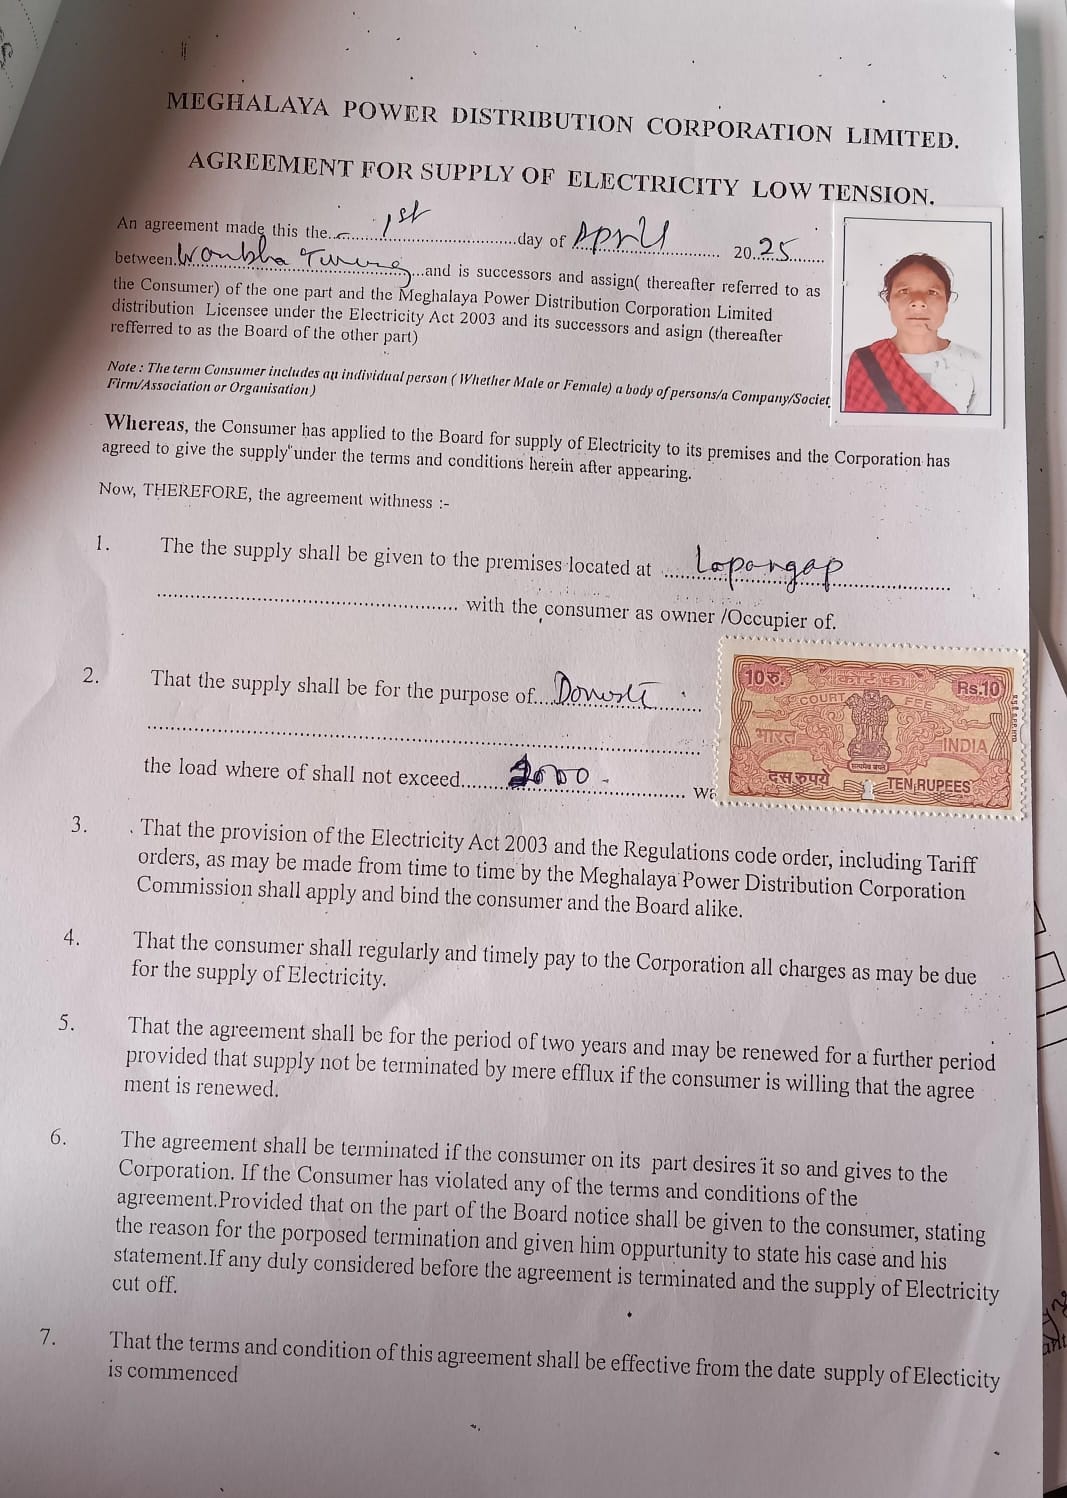 MEGHALAYA POWER DISTRIBUTION CORPORATION LIMITED.
AGREEMENT FOR SUPPLY OF ELECTRICITY LOW TENSION.
An agreement made this the....1st....day of April.... 2025........
between.Wonbha Tureng...and is successors and assign( thereafter referred to as
the Consumer) of the one part and the Meghalaya Power Distribution Corporation Limited
distribution Licensee under the Electricity Act 2003 and its successors and asign (thereafter
refferred to as the Board of the other part)
Note : The term Consumer includes an individual person ( Whether Male or Female) a body of persons/a Company/Societ
Firm/Association or Organisation )
Whereas, the Consumer has applied to the Board for supply of Electricity to its premises and the Corporation has
agreed to give the supply under the terms and conditions herein after appearing.
Now, THEREFORE, the agreement withness :-
1. The the supply shall be given to the premises located at ....Lapangap....
.... with the consumer as owner /Occupier of.
2. That the supply shall be for the purpose of....
10रु. कोर्ट फीस Rs.10
COURT FEE
भारत INDIA
सत्यमेव जयते
दस रुपये TEN RUPEES
the load where of shall not exceed.... .... wa
3. That the provision of the Electricity Act 2003 and the Regulations code order, including Tariff
orders, as may be made from time to time by the Meghalaya Power Distribution Corporation
Commission shall apply and bind the consumer and the Board alike.
4. That the consumer shall regularly and timely pay to the Corporation all charges as may be due
for the supply of Electricity.
5. That the agreement shall be for the period of two years and may be renewed for a further period
provided that supply not be terminated by mere efflux if the consumer is willing that the agree
ment is renewed.
6. The agreement shall be terminated if the consumer on its part desires it so and gives to the
Corporation. If the Consumer has violated any of the terms and conditions of the
agreement.Provided that on the part of the Board notice shall be given to the consumer, stating
the reason for the porposed termination and given him oppurtunity to state his case and his
statement.If any duly considered before the agreement is terminated and the supply of Electricity
cut off.
7. That the terms and condition of this agreement shall be effective from the date supply of Electicity
is commenced